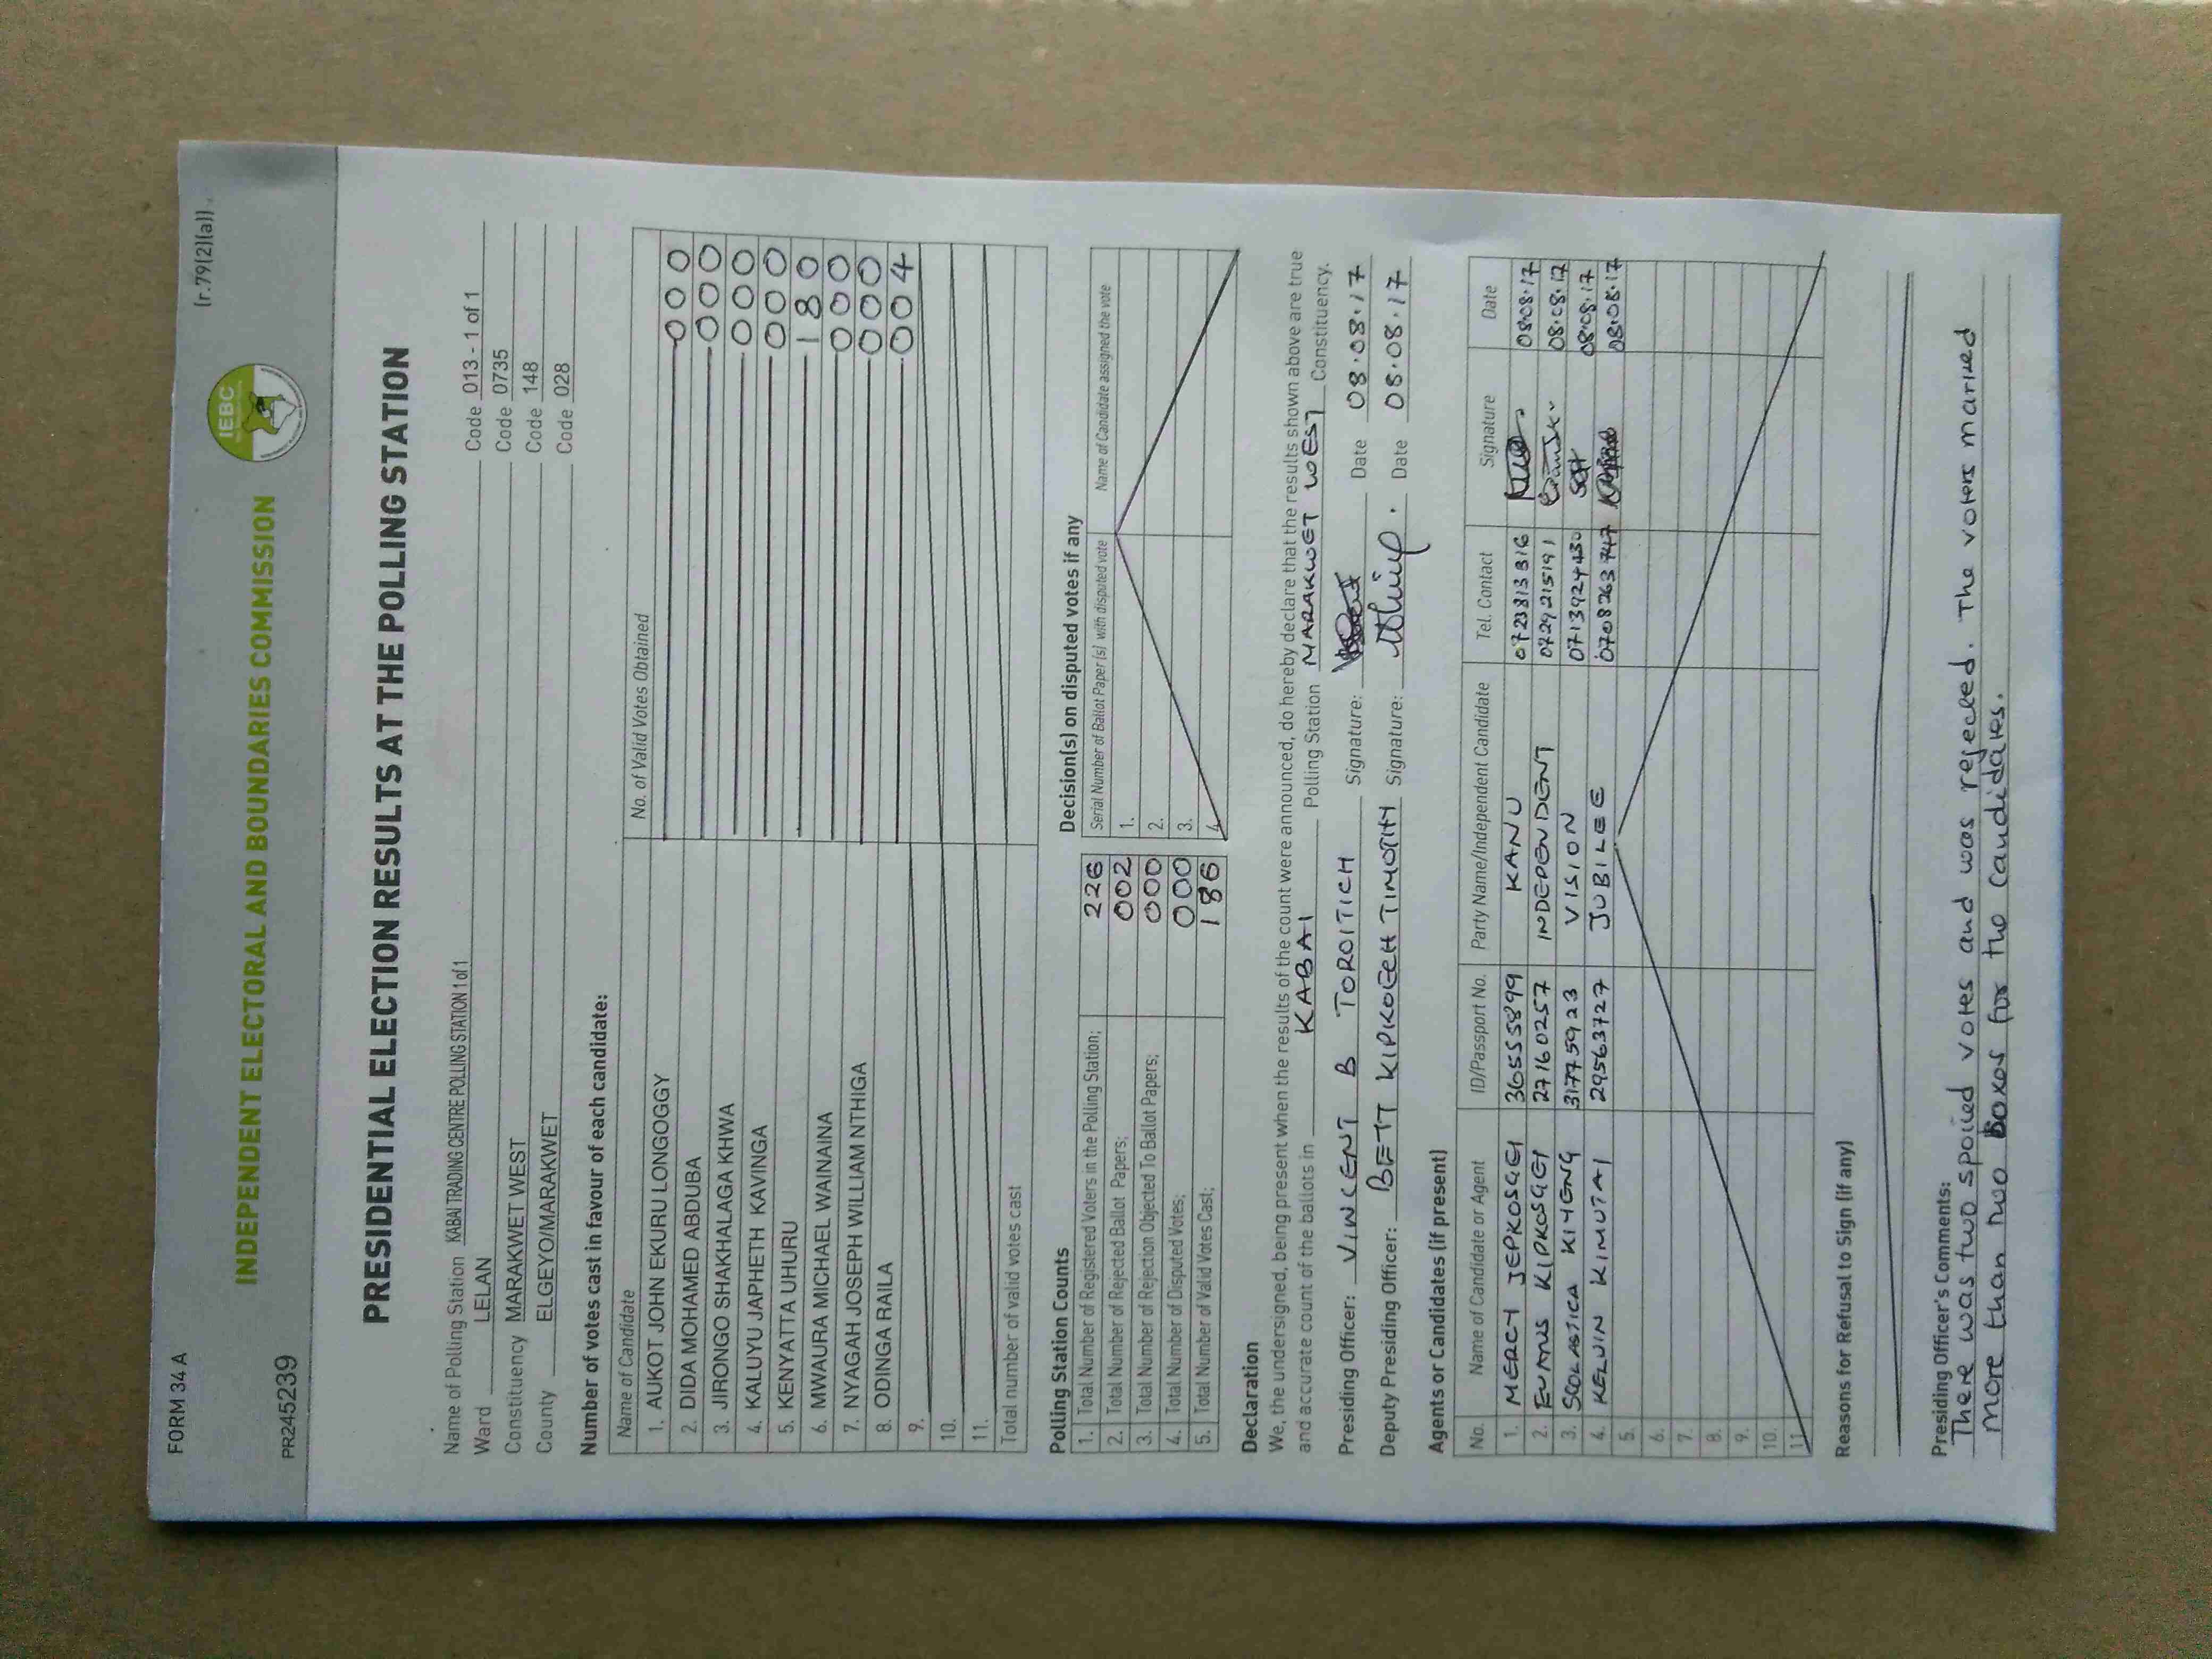 FORM 34 A
(r.79(2)(a))
IEBC
INDEPENDENT ELECTORAL AND BOUNDARIES COMMISSION
PR245239
PRESIDENTIAL ELECTION RESULTS AT THE POLLING STATION
Name of Polling Station KABAI TRADING CENTRE POLLING STATION 1 of 1 Code 013 - 1 of 1
Ward LELAN Code 0735
Constituency MARAKWET WEST Code 148
County ELGEYO/MARAKWET Code 028
Number of votes cast in favour of each candidate:
Name of Candidate No. of Valid Votes Obtained
1. AUKOT JOHN EKURU LONGOGGY 000
2. DIDA MOHAMED ABDUBA 000
3. JIRONGO SHAKHALAGA KHWA 000
4. KALUYU JAPHETH KAVINGA 000
5. KENYATTA UHURU 180
6. MWAURA MICHAEL WAINAINA 000
7. NYAGAH JOSEPH WILLIAM NTHIGA 000
8. ODINGA RAILA 004
9.
10.
11.
Total number of valid votes cast
Polling Station Counts
1. Total Number of Registered Voters in the Polling Station; 226
2. Total Number of Rejected Ballot Papers; 002
3. Total Number of Rejection Objected To Ballot Papers; 000
4. Total Number of Disputed Votes; 000
5. Total Number of Valid Votes Cast; 186
Decision(s) on disputed votes if any
Serial Number of Ballot Paper (s) with disputed vote Name of Candidate assigned the vote
1.
2.
3.
4.
Declaration
We, the undersigned, being present when the results of the count were announced, do hereby declare that the results shown above are true
and accurate count of the ballots in KABAI Polling Station MARAKWET WEST Constituency.
Presiding Officer: VINCENT B TOROITICH Signature: Date 08.08.17
Deputy Presiding Officer: BETT KIPKOECH TIMOTHY Signature: Date 08.08.17
Agents or Candidates (if present)
No. Name of Candidate or Agent ID/Passport No. Party Name/Independent Candidate Tel. Contact Signature Date
1. MERCY JEPKOSGEI 36555899 KANU 0723813816 08.08.17
2. EVANS KIPKOSGEI 27160257 INDEPENDENT 0729215191 08.08.17
3. SCOLASTICA KIYENG 31775923 VISION 0713924430 08.08.17
4. KELVIN KIMUTAI 29563727 JUBILEE 0708263747 08.08.17
5.
6.
7.
8.
9.
10.
11.
Reasons for Refusal to Sign (if any)
Presiding Officer's Comments:
There was two spoied votes and was rejected. The voters marked
more than two Boxes for the Candidates.